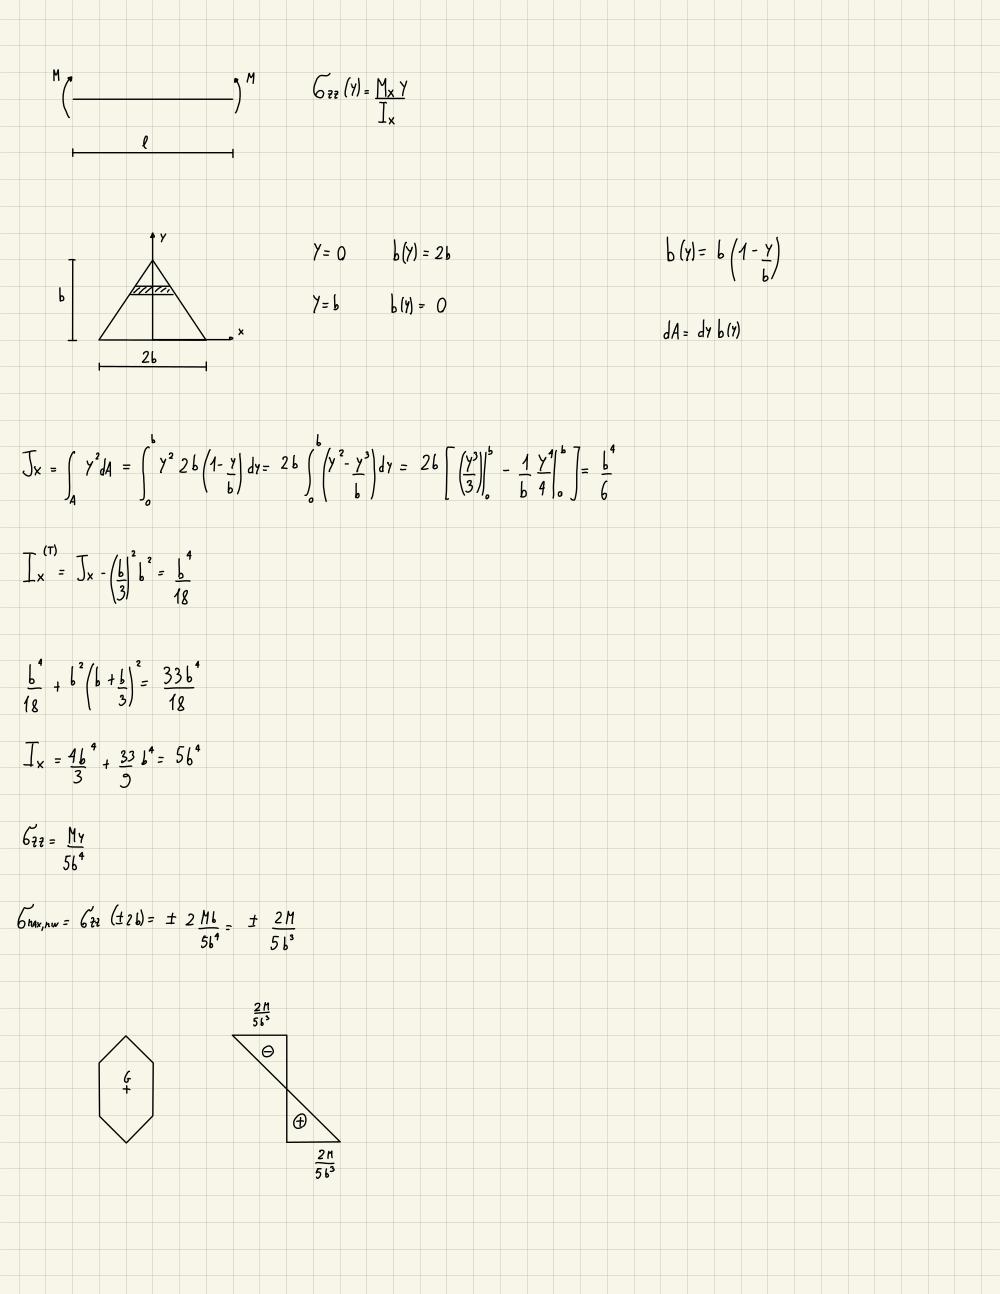 M M σzz(y) = Mx y / Ix
l
y
b
x
2b
y = 0 b(y) = 2b b(y) = b(1 - y/b)
y = b b(y) = 0
dA = dy b(y)
Jx = ∫_A y² dA = ∫_0^b y² 2b (1 - y/b) dy = 2b ∫_0^b (y² - y³/b) dy = 2b [ (y³/3)|_0^b - 1/b y⁴/4 |_0^b ] = b⁴/6
Ix^(T) = Jx - (b/3)² b² = b⁴/18
b⁴/18 + b² (b + b/3)² = 33b⁴/18
Ix = 4b⁴/3 + 33/9 b⁴ = 5b⁴
σzz = My/5b⁴
σmax,min = σzz (±2b) = ± 2 Mb/5b⁴ = ± 2M/5b³
2M/5b³
⊖
G
⊕
2M/5b³